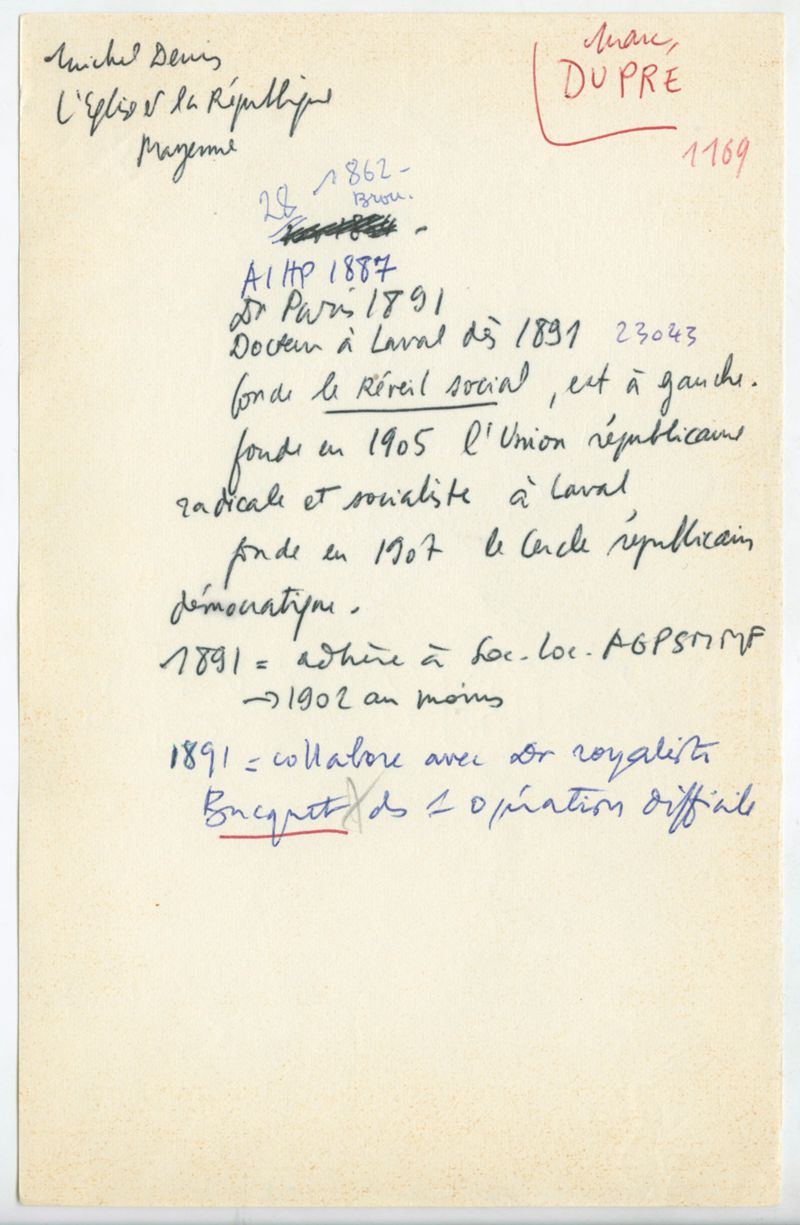 Michel Denis
L'Eglise et la République
Mayenne
Marc,
DUPRE
1169
28 1862-
Brou.
AIHP 1887
Dr Paris 1891
Docteur à Laval dès 1891 23043
fonde le Réveil social, est à gauche.
fonde en 1905 l'Union républicaine
radicale et socialiste à Laval
fonde en 1907 le Cercle républicain
démocratique.
1891 = adhère à Soc. Loc. AGPSMMF
→ 1902 au moins
1891 = collabore avec Dr royaliste
Bucquet ds 1 opération difficile